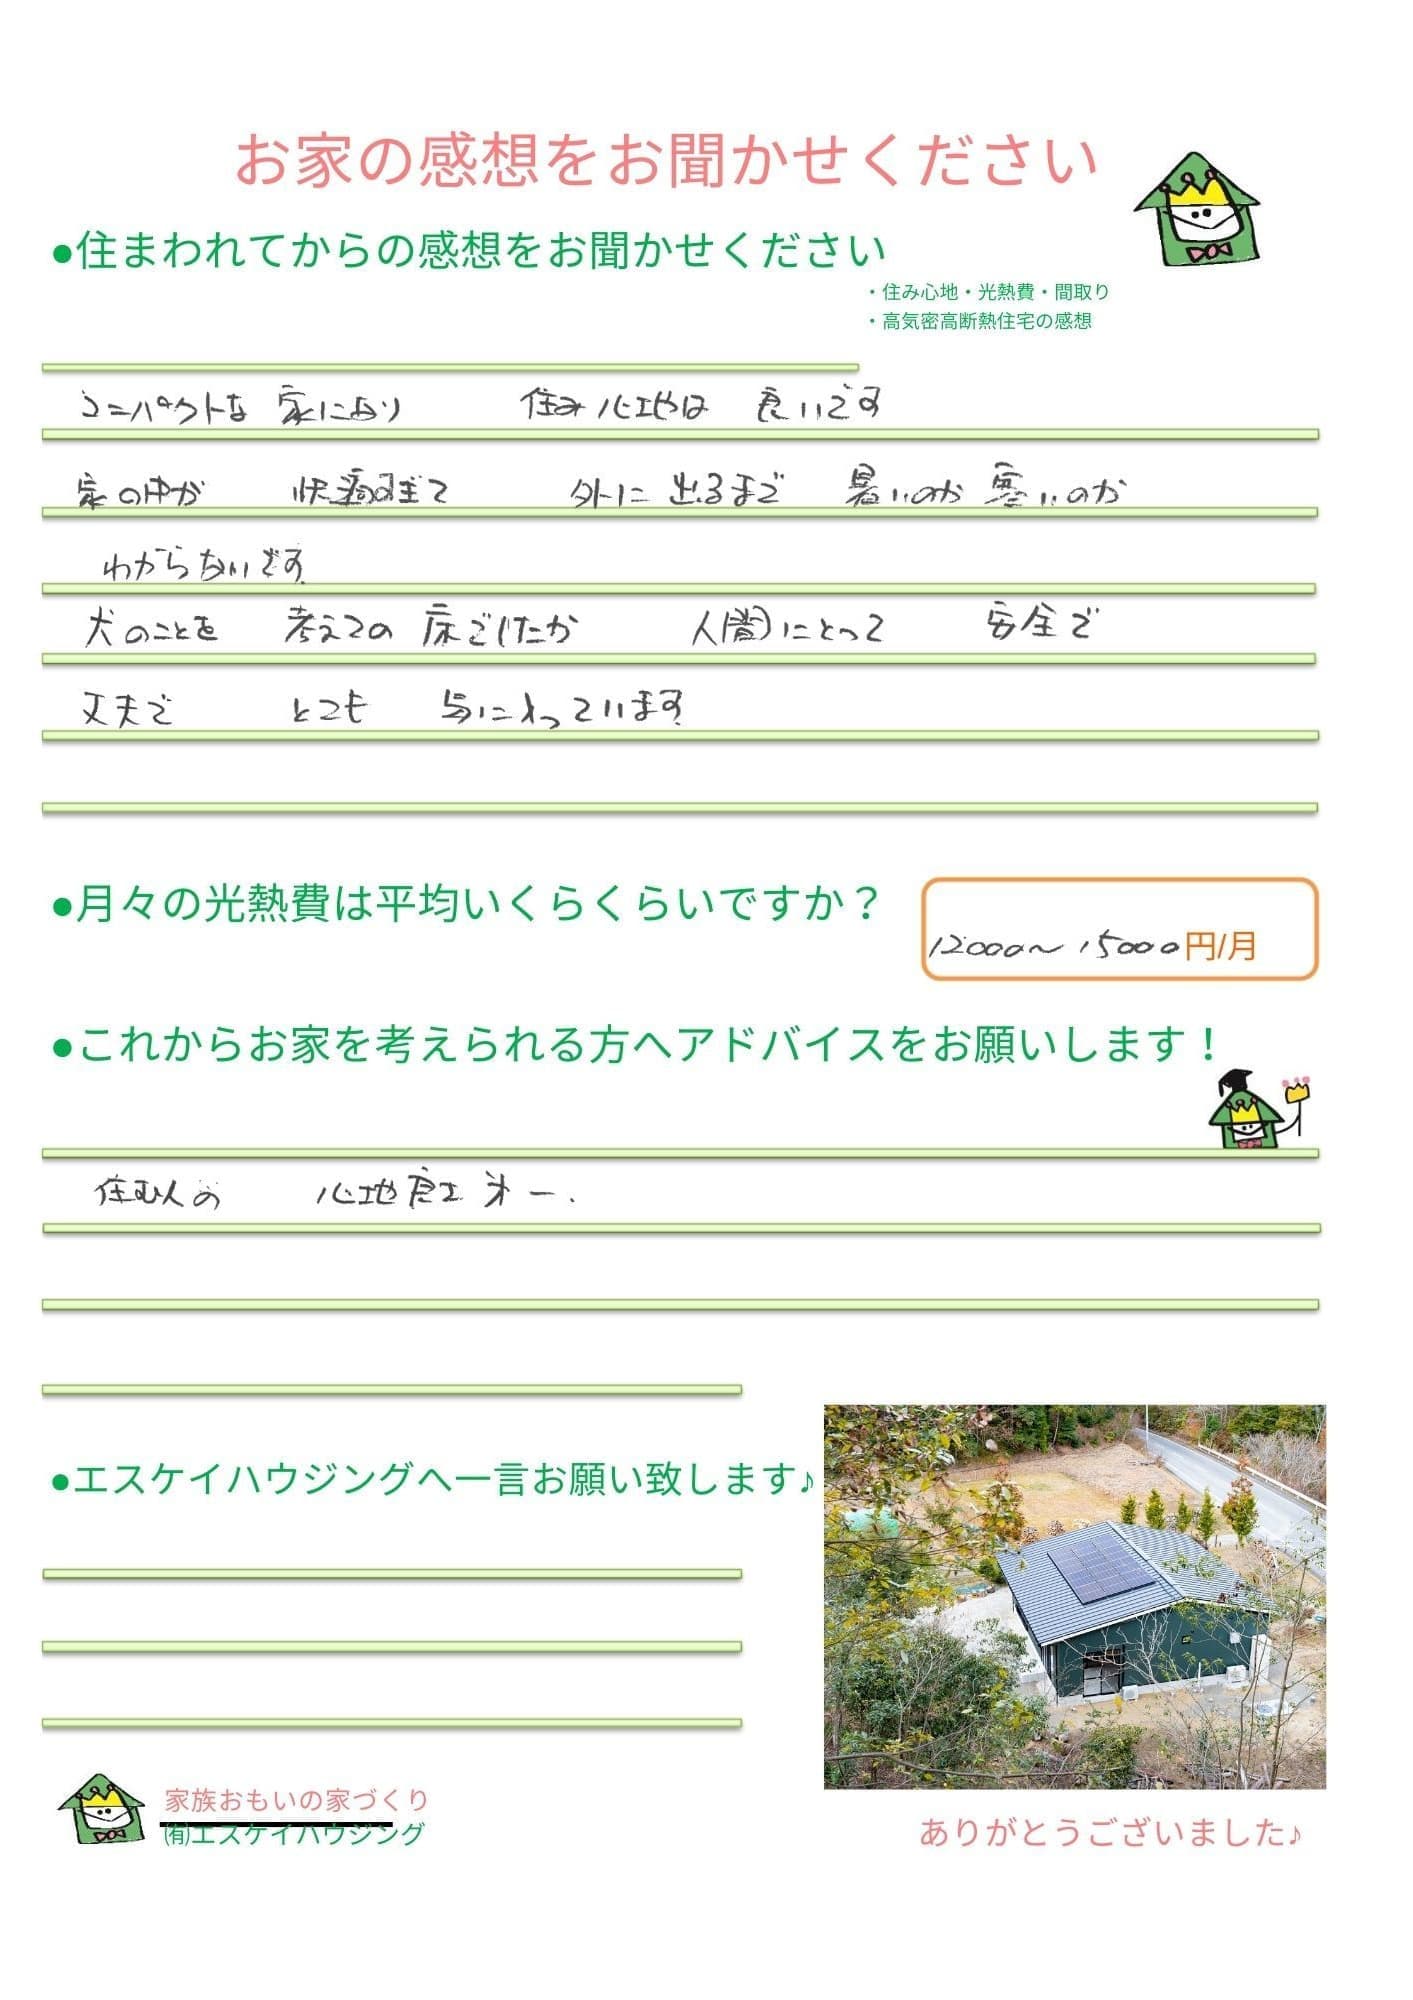 お家の感想をお聞かせください
●住まわれてからの感想をお聞かせください
・住み心地・光熱費・間取り
・高気密高断熱住宅の感想
コンパクトな 家になり 住み心地は 良いです
家の中が 快適すぎて 外に 出るまで 暑いのか 寒いのか
わからないです
犬のことを 考えての 床でしたが 人間にとって 安全で
丈夫で とても 気に入っています
●月々の光熱費は平均いくらくらいですか？
12000〜15000円/月
●これからお家を考えられる方へアドバイスをお願いします！
住む人の 心地良さ 第一.
●エスケイハウジングへ一言お願い致します♪
家族おもいの家づくり
㈲エスケイハウジング
ありがとうございました♪